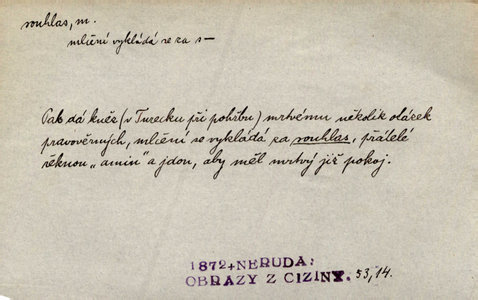 souhlas, m.
mlčení vykládá se za s—
Pak dá kněz (v Turecku při pohřbu) mrtvému několik otázek
pravověrných, mlčení se vykládá za souhlas, přátelé
řeknou „amin" a jdou, aby měl mrtvý již pokoj.
1872+NERUDA:
OBRAZY Z CIZINY. 53,14.